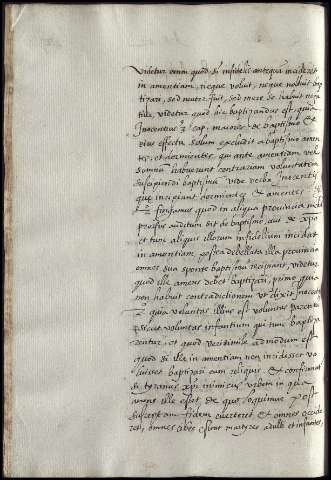 Videtur enim quod si infidelis antequam incideret
in amentiam, neque voluit, neque noluit bap
tizari, sed neuter fuit, sed mere se habuit nega
tive, videtur quod sit baptizandus est, quia
Inocentius 3 cap. maiores de baptismo et
eius effectu solum excludit a baptismo amen
tes, et dormientes, qui ante amentiam vel
somnu habuerunt contrariam voluntatem
suscipiendi baptismu vide verba Inocentii
que incipiunt dormientes et amentes
fingamus quod in aliqua provincia nihil
prorsus auditum sit de baptismo, aut de xpo
et tunc aliquis illorum infidelium incidat
in amentiam, postea debellata illa provincia
omnes sua sponte baptismu recipiant, videtur
quod ille amens debet baptizari, primo quia
non habuit contradictionem ut dixit Inocentius
2º quia voluntas illius est voluntas parentum
sicut voluntas infantium qui tunc baptiza
rentur, et quod verisimile admodum est
quod si ille in amentiam non incidisset vo
luisset baptizari cum reliquis, et confirmatur
si tyranus xpi inimicus urbem in qua
amens ille esset, de quo loquimur post
susceptam fidem everteret et omnes occide
ret, omnes absque essent martyres adulti et infantes,